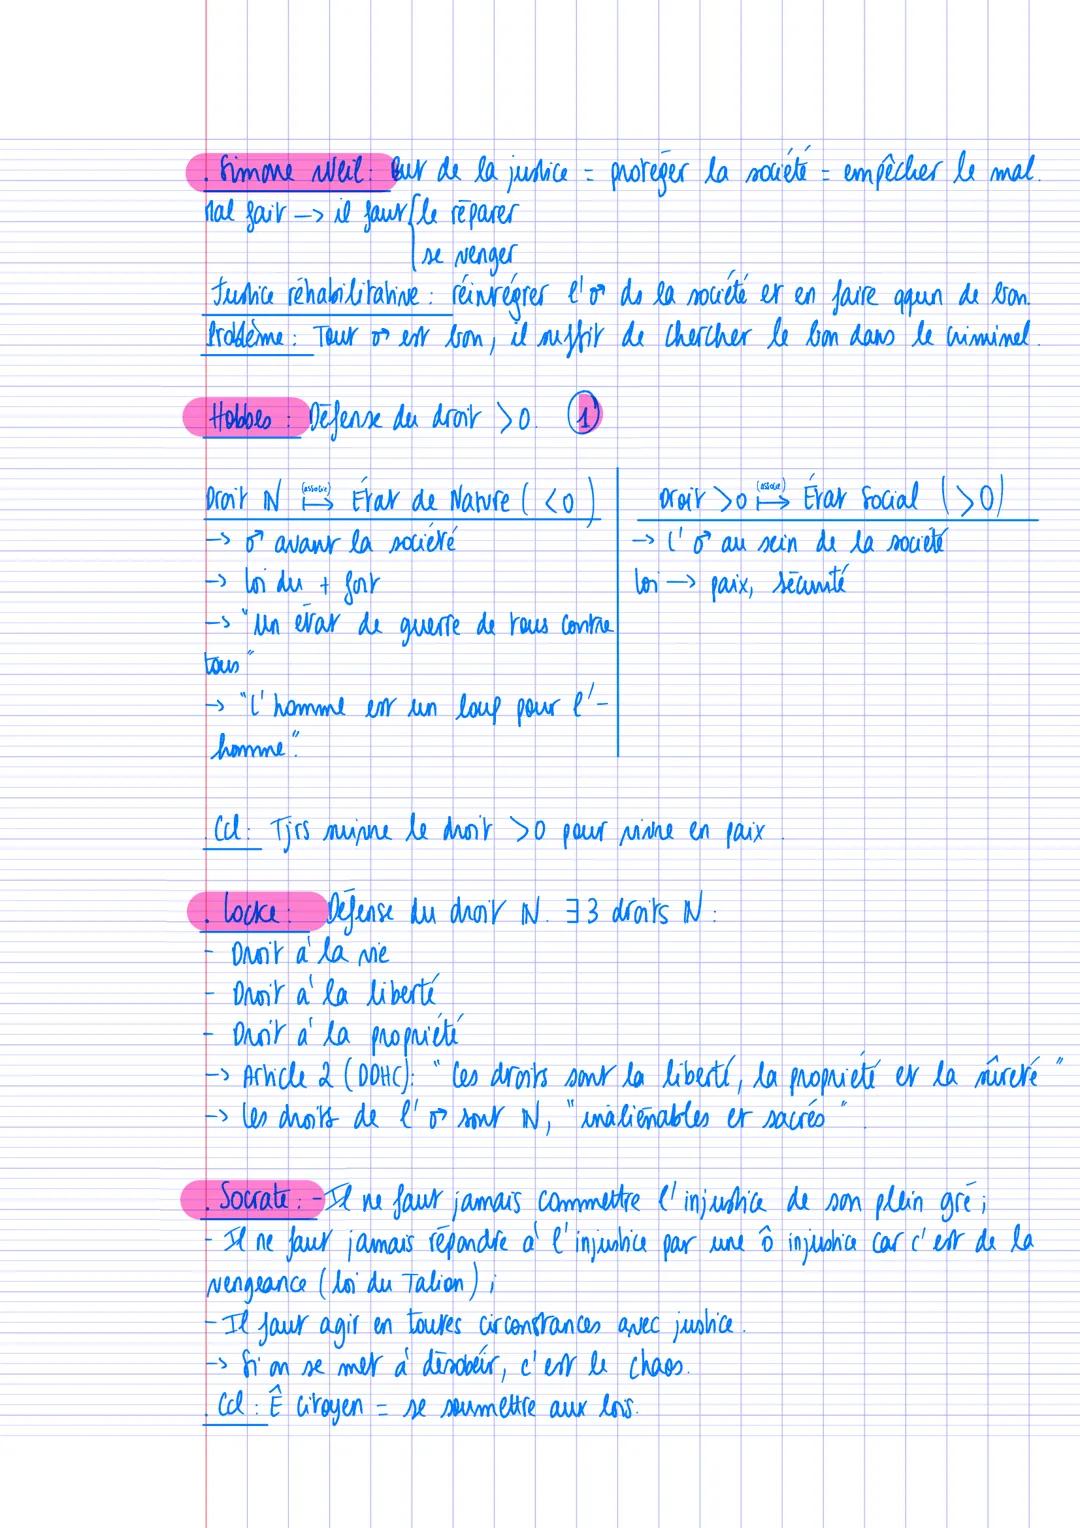 . Simone Weil : But de la justice = protéger la société = empêcher le mal.
Mal fait -> il faut { le réparer
se venger
Justice réhabilitative : réintégrer l'♂ ds la société et en faire qqun de bon.
Problème : Tout ♂ est bon, il suffit de chercher le bon dans le criminel.
. Hobbes : Défense du droit >0. 1
Droit N (associe) ↦ État de Nature ( <0 )
-> ♂ avant la société
-> Loi du + fort
-> "Un état de guerre de tous contre
tous"
-> "L'homme est un loup pour l'-
homme".
Droit >0 (associe) ↦ État Social ( >0 )
-> L'♂ au sein de la société
Loi -> paix, sécurité
. Ccl : Tjrs suivre le droit >0 pour vivre en paix.
. Locke : Défense du droit N. ∃ 3 droits N :
- Droit à la vie
- Droit à la liberté
- Droit à la propriété
-> Article 2 (DDHC) : "Ces droits sont la liberté, la propriété et la sûreté"
-> Les droits de l'♂ sont N, "inaliénables et sacrés".
. Socrate : - Il ne faut jamais commettre l'injustice de son plein gré ;
- Il ne faut jamais répondre à l'injustice par une ô injustice car c'est de la
vengeance (loi du Talion) ;
- Il faut agir en toutes circonstances avec justice.
-> Si on se met à désobéir, c'est le chaos.
. Ccl : Ê citoyen = se soumettre aux lois.